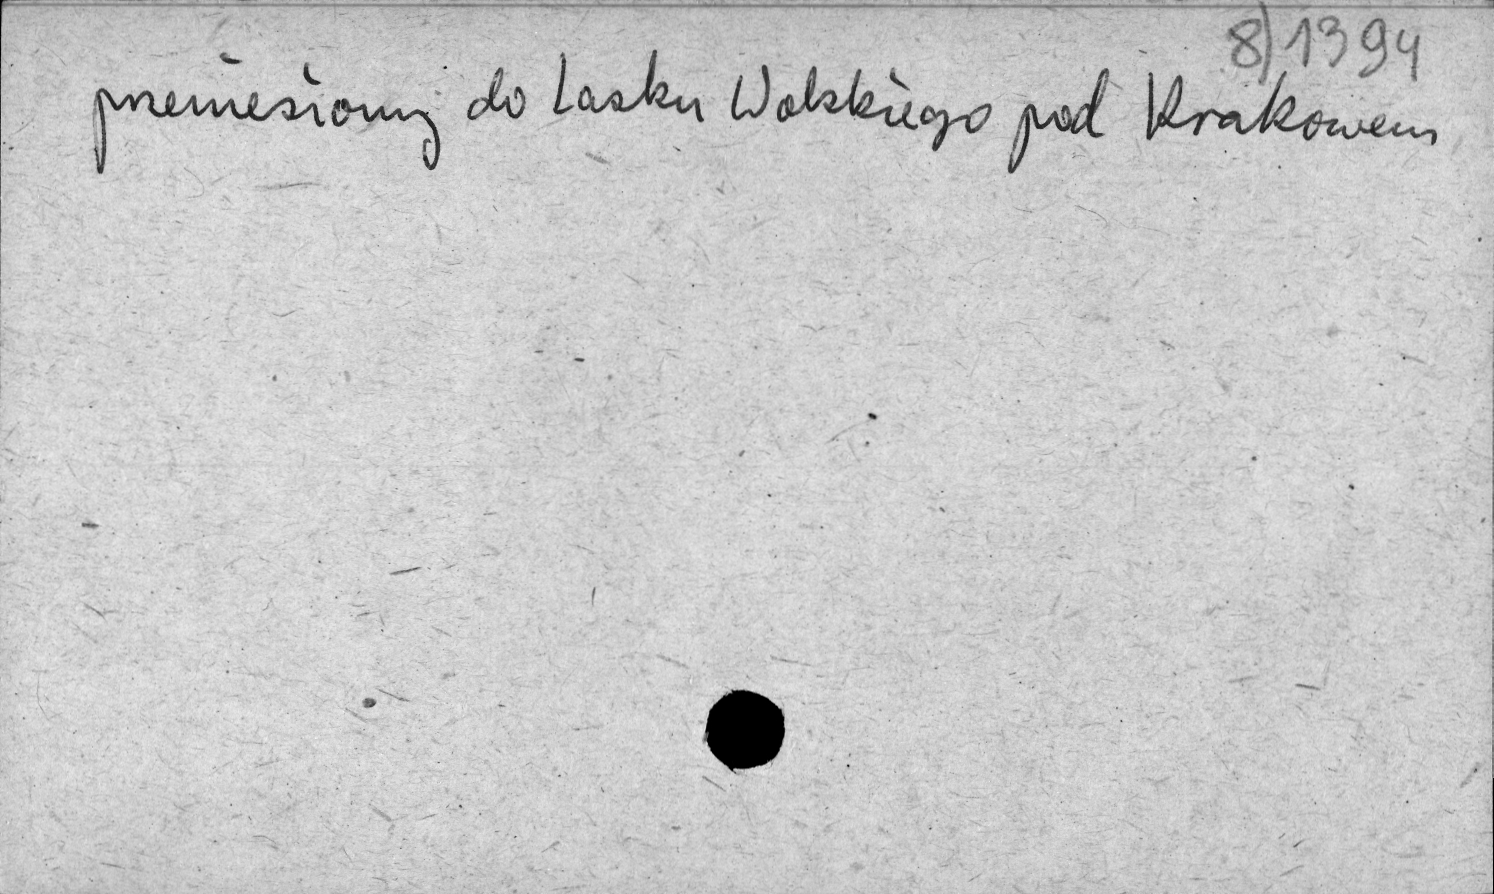 8) 1394
przeniesiony do Lasku Wolskiego pod Krakowem